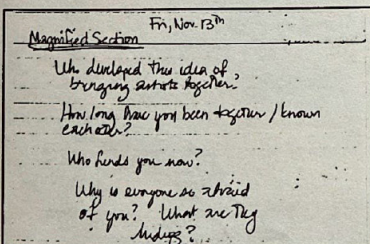 Fri, Nov. 13th
Magnified Section
Who developed this idea of
bringing artists together?
How long have you been together / known
each other?
Who funds you now?
Why is everyone so afraid
of you? What are they
hiding?